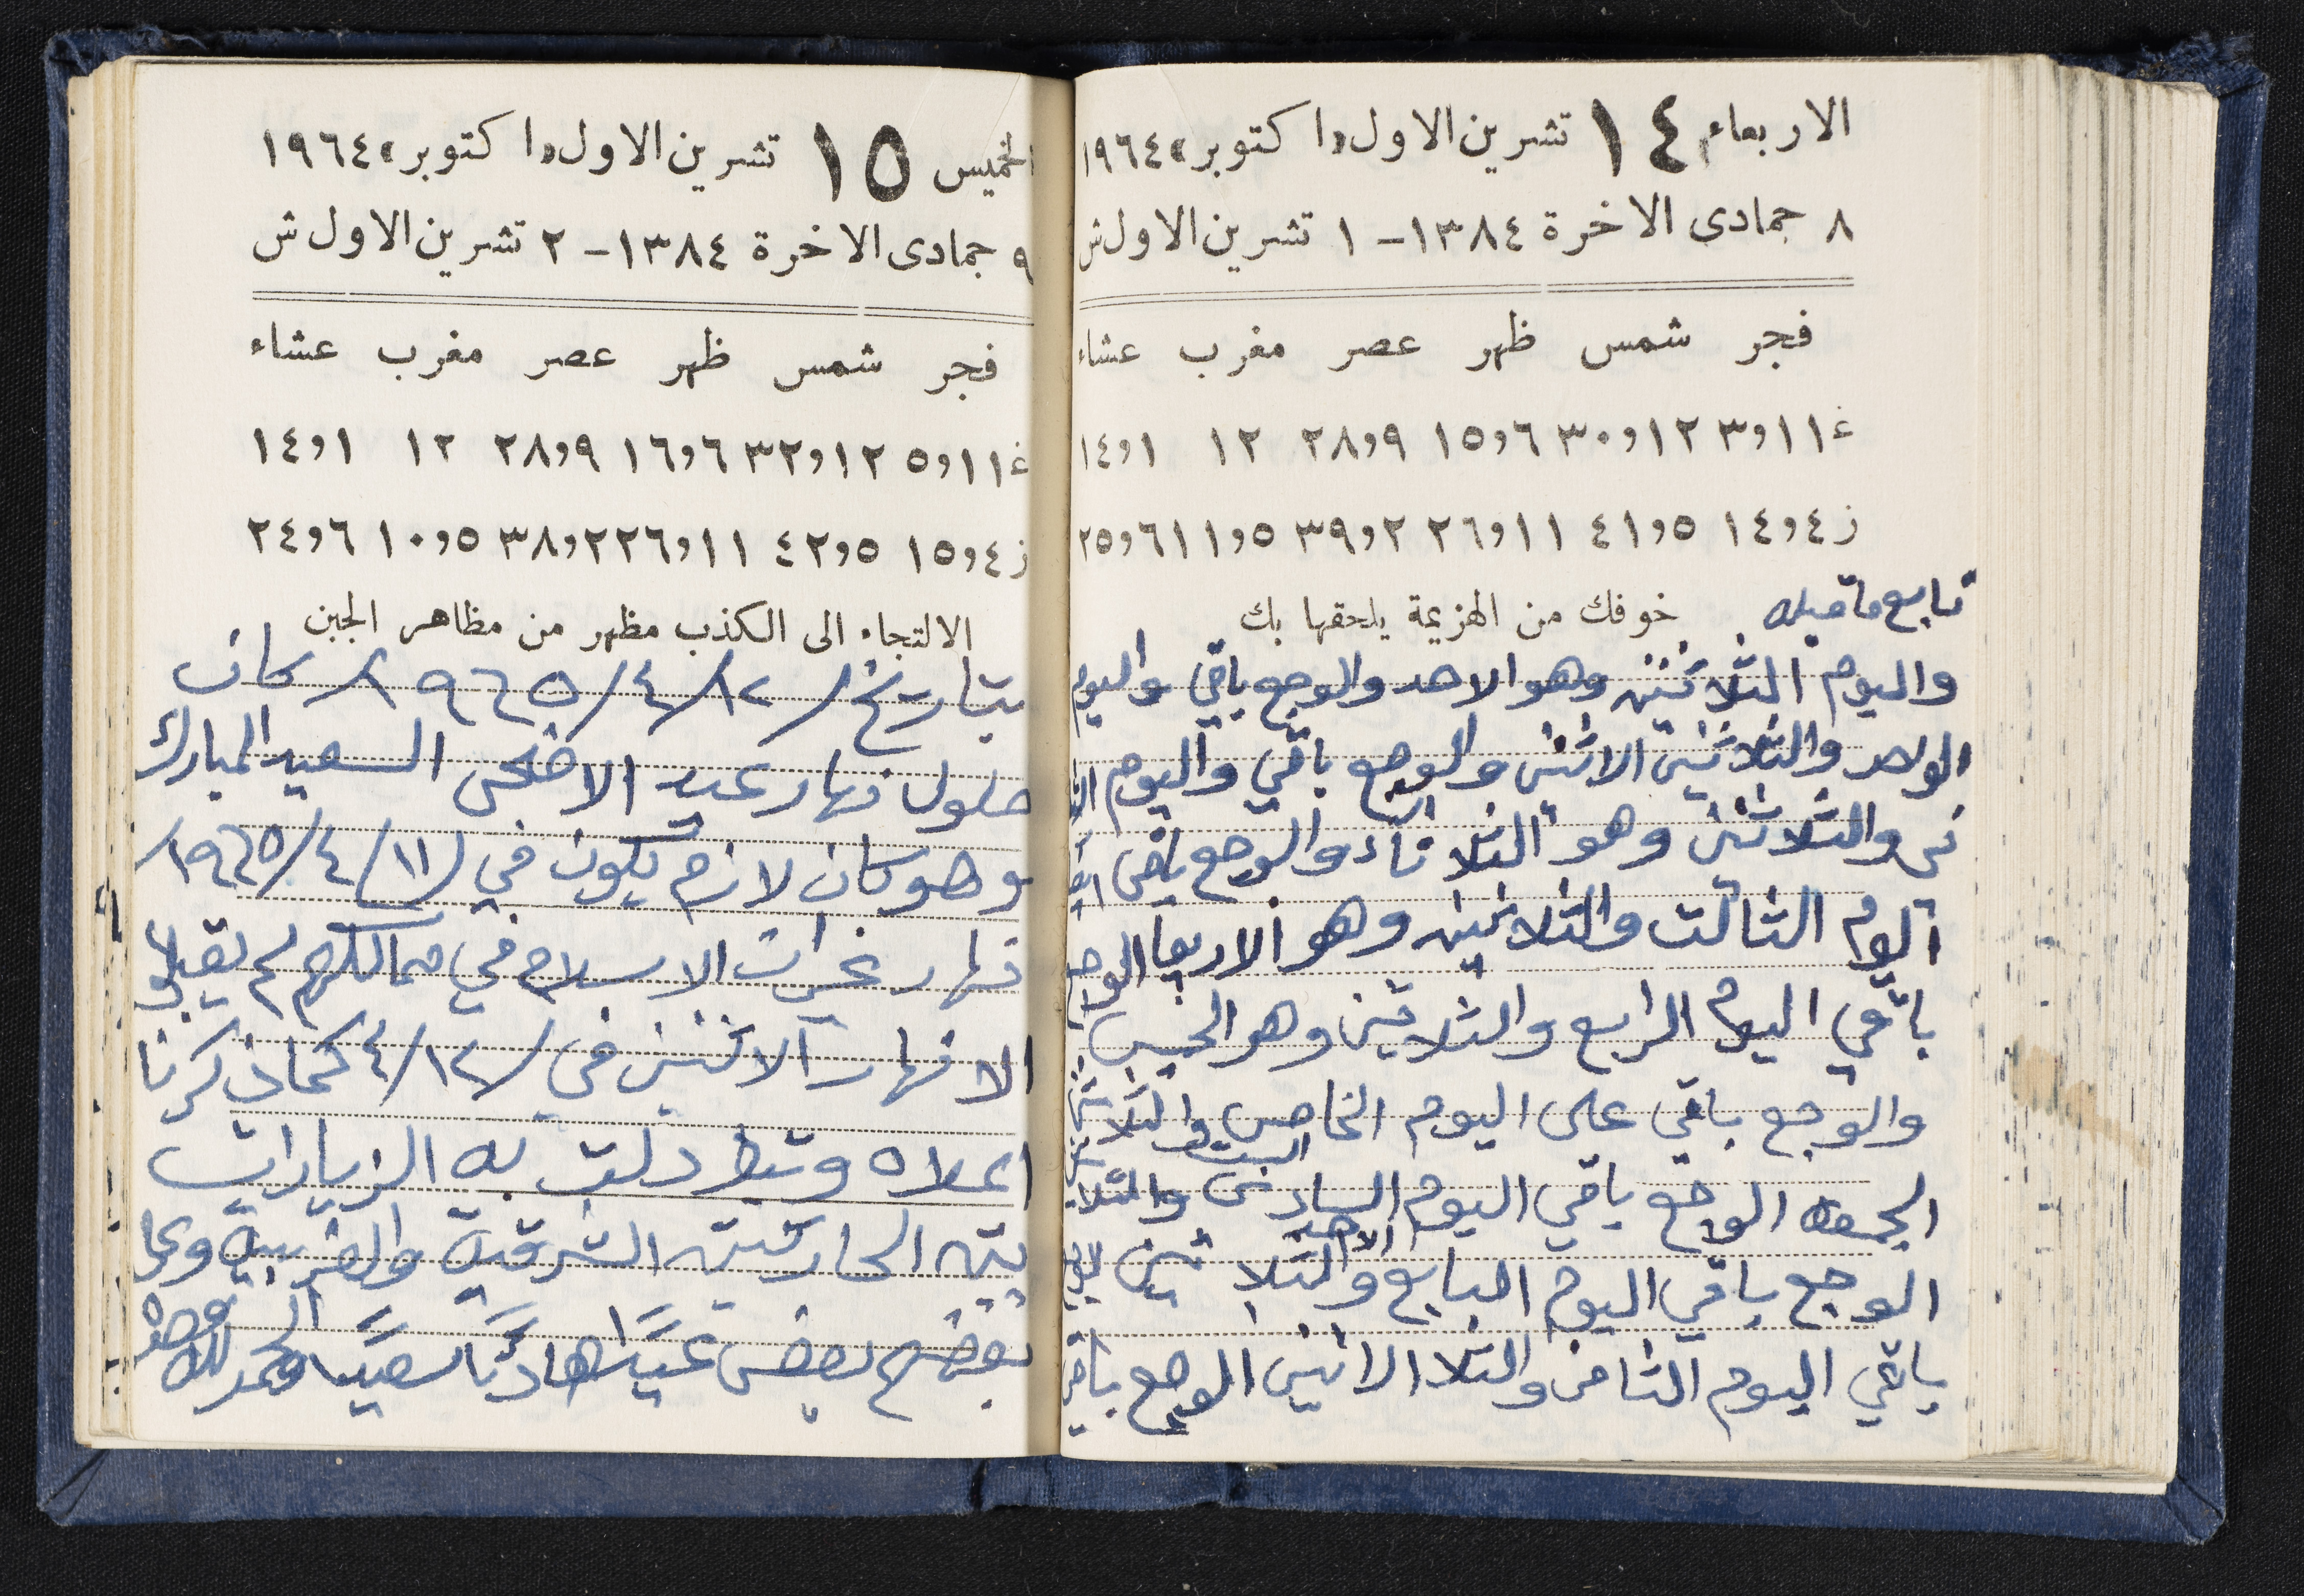 الاربعاء ١٤ تشرين الاول «اكتوبر» ١٩٦٤
٨ جمادى الاخرة ١٣٨٤ - ١ تشرين الاول ش
فجر شمس ظهر عصر مغرب عشاء
غ ١١و٣ ١٢و٣٠ ٦و١٥ ٩و٢٨ ١٢ ١و١٤
ز ٤و١٤ ٥و٤١ ١١و٢٦ ٢و٣٩ ٥و١١ ٦و٢٥
تابع ما قبله خوفك من الهزيمة يلحقها بك
واليوم الثلاثين وهو الاحد والوجع باقي واليوم
الواحد والثلاثين الاثنين والوجع باقي واليوم الثا
ني والثلاثين وهو الثلاثاء والوجع باقي
اليوم الثالث والثلاثين وهو الاربعا الوجع
باقي اليوم الرابع والثلاثين وهو الخميس
والوجع باقي على اليوم الخامس والثلاثين
الجمعه الوجع باقي اليوم السادس والثلاثين السبت
الوجع باقي اليوم السابع والثلاثين الاحد الوجع
باقي اليوم الثامن والثلا الاثنين الوجع باقي
الخميس ١٥ تشرين الاول «اكتوبر» ١٩٦٤
٩ جمادى الاخرة ١٣٨٤ - ٢ تشرين الاول ش
فجر شمس ظهر عصر مغرب عشاء
غ ١١و٥ ١٢و٣٢ ٦و١٦ ٩و٢٨ ١٢ ١و١٤
ز ٤و١٥ ٥و٤٢ ١١و٢٦ ٢و٣٨ ٥و١٠ ٦و٢٤
الالتجاء الى الكذب مظهر من مظاهر الجبن
بتاريخ /١٢/٤/١٩٦٥/ كان
حلول نهار عيد الاضحى السعيد المبارك
وهو كان لازم يكون في /١١/٤/١٩٦٥/
نهار الاسلام في ممالكهم لم يقبلو
الا نهار الاثنين في /١٢/٤ كما ذكرنا
اعلاه به الزيارات
بين الحارتين الشرقية والغربية
بعضهم بعض عيدًا هاديًا سعيدًا والحمد لله